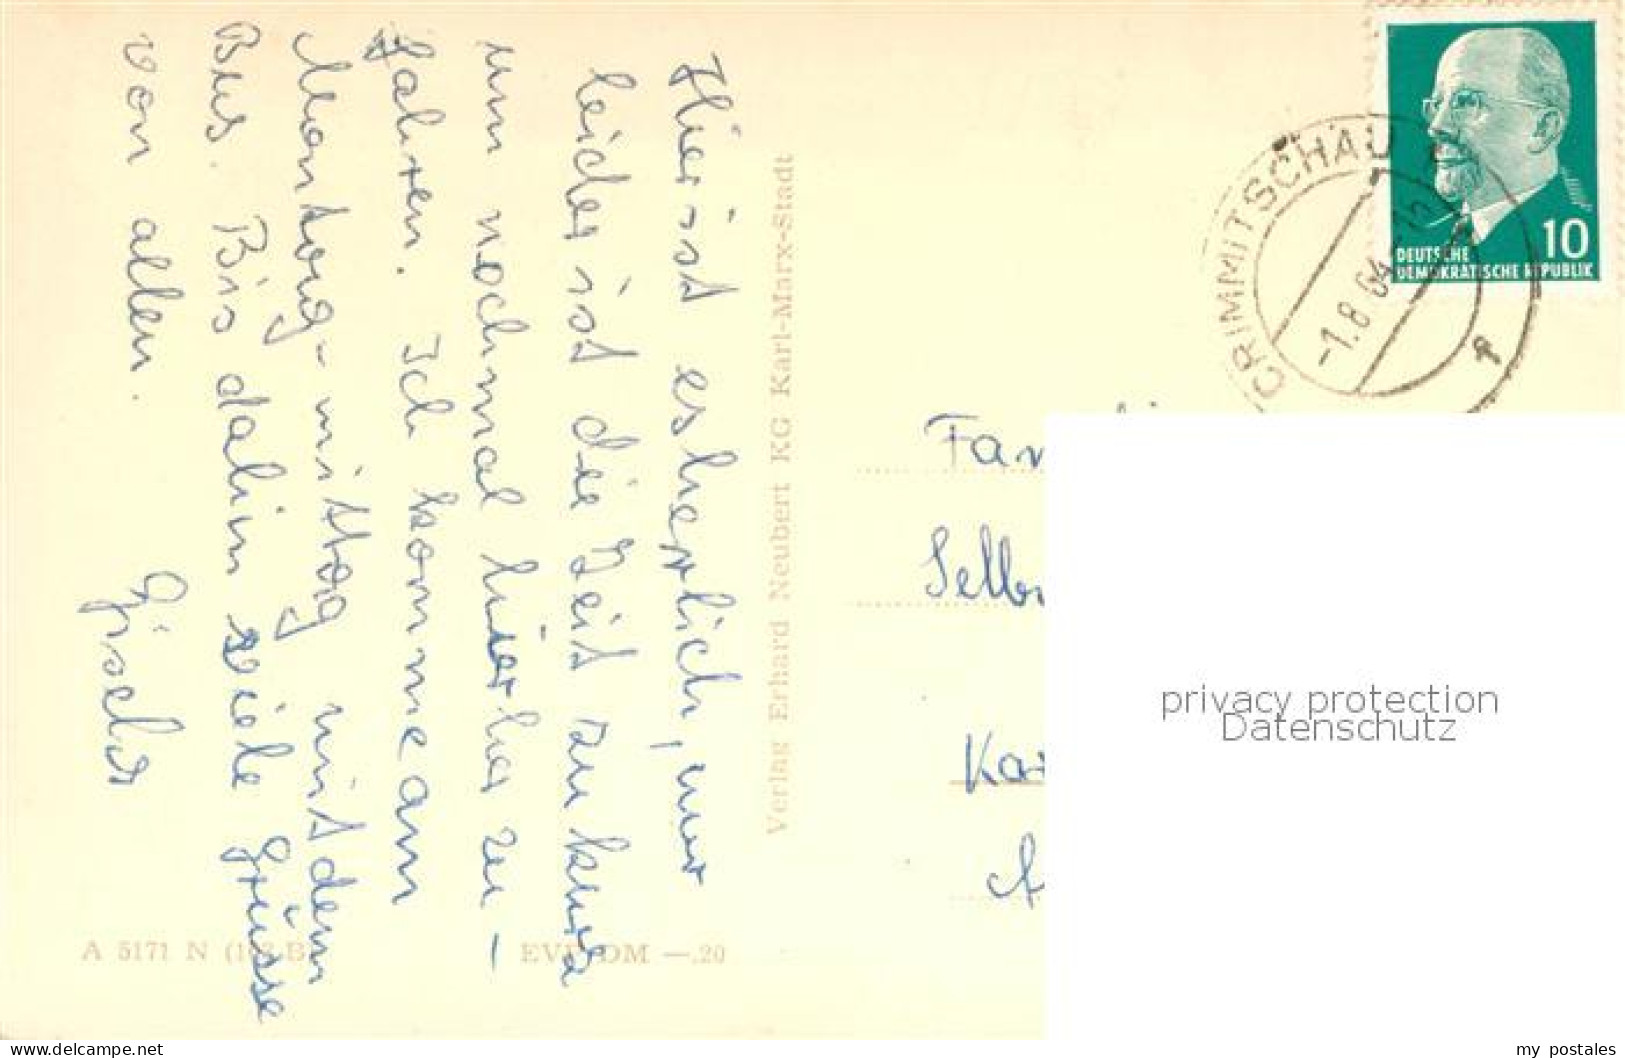 Hier ist es herrlich, nur
leider ist die Zeit zu kurz
um nochmal hierher zu-
fahren. Ich komme am
Montag-mittag mit dem
Bus. Bis dahin viele Grüsse
von allen.
Gisela
Verlag Erhard Neubert KG Karl-Marx-Stadt
A 5171 N
EVP DM —.20
CRIMMITSCHAU
-1.8.64
f
10
DEUTSCHE
DEMOKRATISCHE REPUBLIK
Fam
privacy protection
Datenschutz
www.delcampe.net
my postales